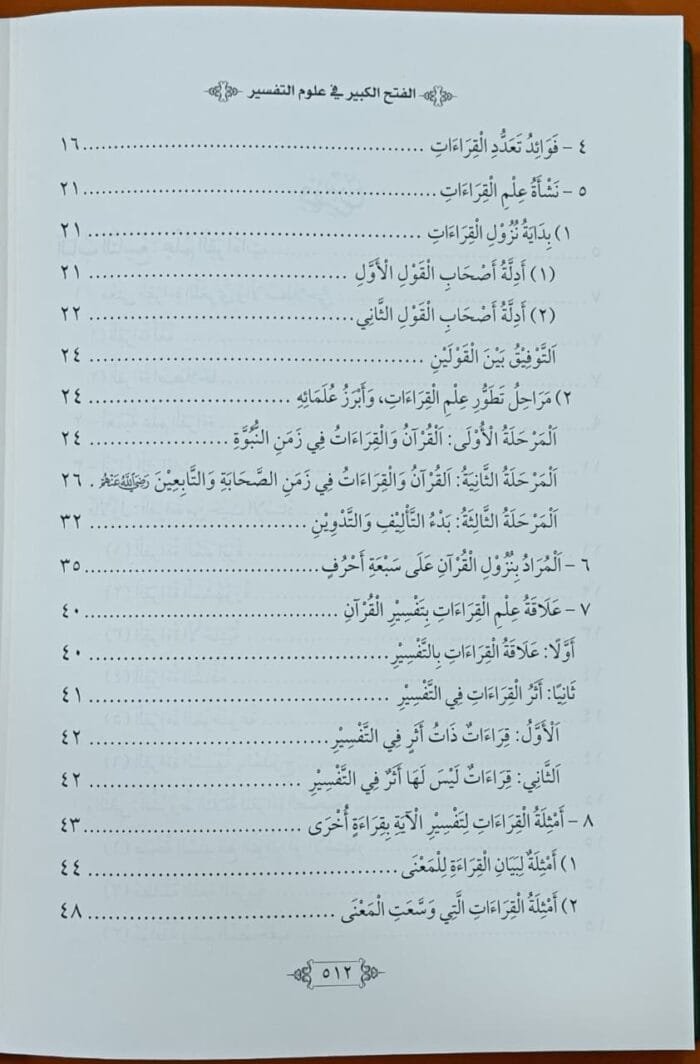 الفتح الكبير في علوم التفسير
٤ - فَوَائِدُ تَعَدُّدِ الْقِرَاءَاتِ ........ ١٦
٥ - نَشْأَةُ عِلْمِ الْقِرَاءَاتِ ........ ٢١
١) بِدَايَةُ نُزُولِ الْقِرَاءَاتِ ........ ٢١
(١) أَدِلَّةُ أَصْحَابِ الْقَوْلِ الْأَوَّلِ ........ ٢١
(٢) أَدِلَّةُ أَصْحَابِ الْقَوْلِ الثَّانِي ........ ٢٢
اَلتَّوْفِيْقُ بَيْنَ الْقَوْلَيْنِ ........ ٢٤
٢) مَرَاحِلُ تَطَوُّرِ عِلْمِ الْقِرَاءَاتِ، وَأَبْرَزُ عُلَمَائِهِ ........ ٢٤
اَلْمَرْحَلَةُ الْأُوْلَى: اَلْقُرْآنُ وَالْقِرَاءَاتُ فِي زَمَنِ النُّبُوَّةِ ........ ٢٤
اَلْمَرْحَلَةُ الثَّانِيَةُ: اَلْقُرْآنُ وَالْقِرَاءَاتُ فِي زَمَنِ الصَّحَابَةِ وَالتَّابِعِيْنَ رَضِيَ اللَّهُ عَنْهُمْ . ٢٦
اَلْمَرْحَلَةُ الثَّالِثَةُ: بَدْءُ التَّأْلِيْفِ وَالتَّدْوِيْنِ ........ ٣٢
٦ - اَلْمُرَادُ بِنُزُوْلِ الْقُرْآنِ عَلَى سَبْعَةِ أَحْرُفٍ ........ ٣٥
٧ - عَلَاقَةُ عِلْمِ الْقِرَاءَاتِ بِتَفْسِيْرِ الْقُرْآنِ ........ ٤٠
أَوَّلًا: عَلَاقَةُ الْقِرَاءَاتِ بِالتَّفْسِيْرِ ........ ٤٠
ثَانِيًا: أَثَرُ الْقِرَاءَاتِ فِي التَّفْسِيْرِ ........ ٤١
اَلْأَوَّلُ: قِرَاءَاتٌ ذَاتُ أَثَرٍ فِي التَّفْسِيْرِ ........ ٤٢
اَلثَّانِي: قِرَاءَاتٌ لَيْسَ لَهَا أَثَرٌ فِي التَّفْسِيْرِ ........ ٤٢
٨ - أَمْثِلَةُ الْقِرَاءَاتِ لِتَفْسِيْرِ الْآيَةِ بِقِرَاءَةٍ أُخْرَى ........ ٤٣
١) أَمْثِلَةٌ لِبَيَانِ الْقِرَاءَةِ لِلْمَعْنَى ........ ٤٤
٢) أَمْثِلَةُ الْقِرَاءَاتِ الَّتِي وَسَّعَتِ الْمَعْنَى ........ ٤٨
٥١٢